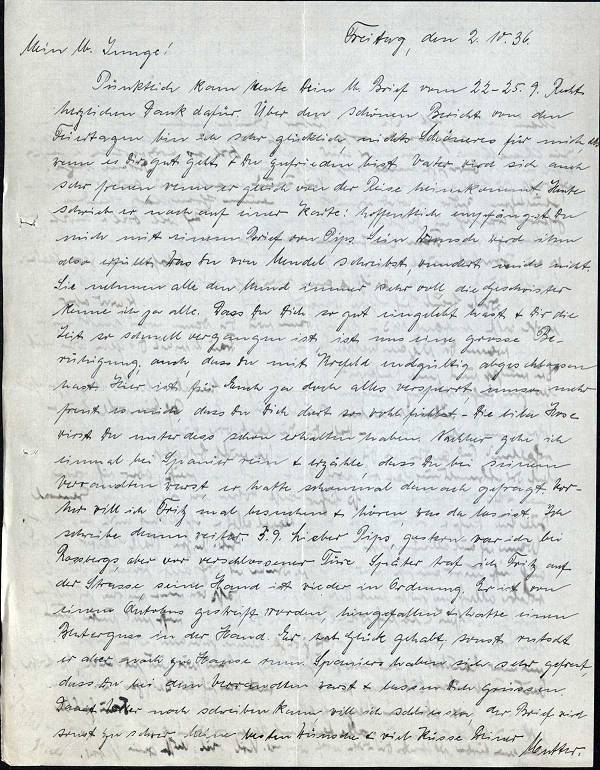 Freitag, den 2. 10. 36.
Mein lb. Junge!
Pünktlich kam heute Dein lb. Brief vom 22-25. 9. Recht
herzlichen Dank dafür. Über den schönen Bericht von den
Feiertagen bin ich sehr glücklich, nichts Schöneres für mich, als
wenn es Dir gut geht & Du zufrieden bist. Vater wird sich auch
sehr freuen wenn er gleich von der Reise heimkommt. Heute
schrieb er noch auf einer Karte: hoffentlich empfängst Du
mich mit einem Brief von Pips. Sein Wunsch wird ihm
also erfüllt. Was Du von Mendel schreibst, wundert mich nicht.
Sie nehmen alle den Mund immer sehr voll die Geschwister
kenne ich ja alle. Dass Du Dich so gut eingelebt hast & Dir die
Zeit so schnell vergangen ist ist uns eine grosse Be-
ruhigung, auch, dass Du mit Krefeld endgültig abgeschlossen
hast. Hier ist für Euch ja doch alles versperrt, umso mehr
freut es mich, dass Du Dich dort so wohl fühlst. Die Hose
wirst Du unterdess schon erhalten haben. Nachher gehe ich
einmal bei Spanier rein & erzähle, dass Du bei seinen
Verwandten warst, er hatte schonmal danach gefragt. Vor-
her will ich Fritz mal besuchen & hören was da los ist. Ich
schreibe dann weiter. 3. 9. Lieber Pips, gestern war ich bei
Rossbergs, aber vor verschlossener Türe. Später traf ich Fritz auf
der Strasse, seine Hand ist wieder in Ordnung. Er ist von
einem Autobus gestreift worden, hingefallen & hatte einen
Bluterguss in der Hand. Er hat Glück gehabt, sonst
er aber zu Hause rum. Spaniers haben sich sehr gefreut,
dass Du bei den Verwandten warst & lassen Dich grüssen.
Damit Vater noch schreiben kann will ich schliessen, der Brief wird
sonst zu schwer. Meine besten Wünsche & viele Küsse Deiner
Mutter.